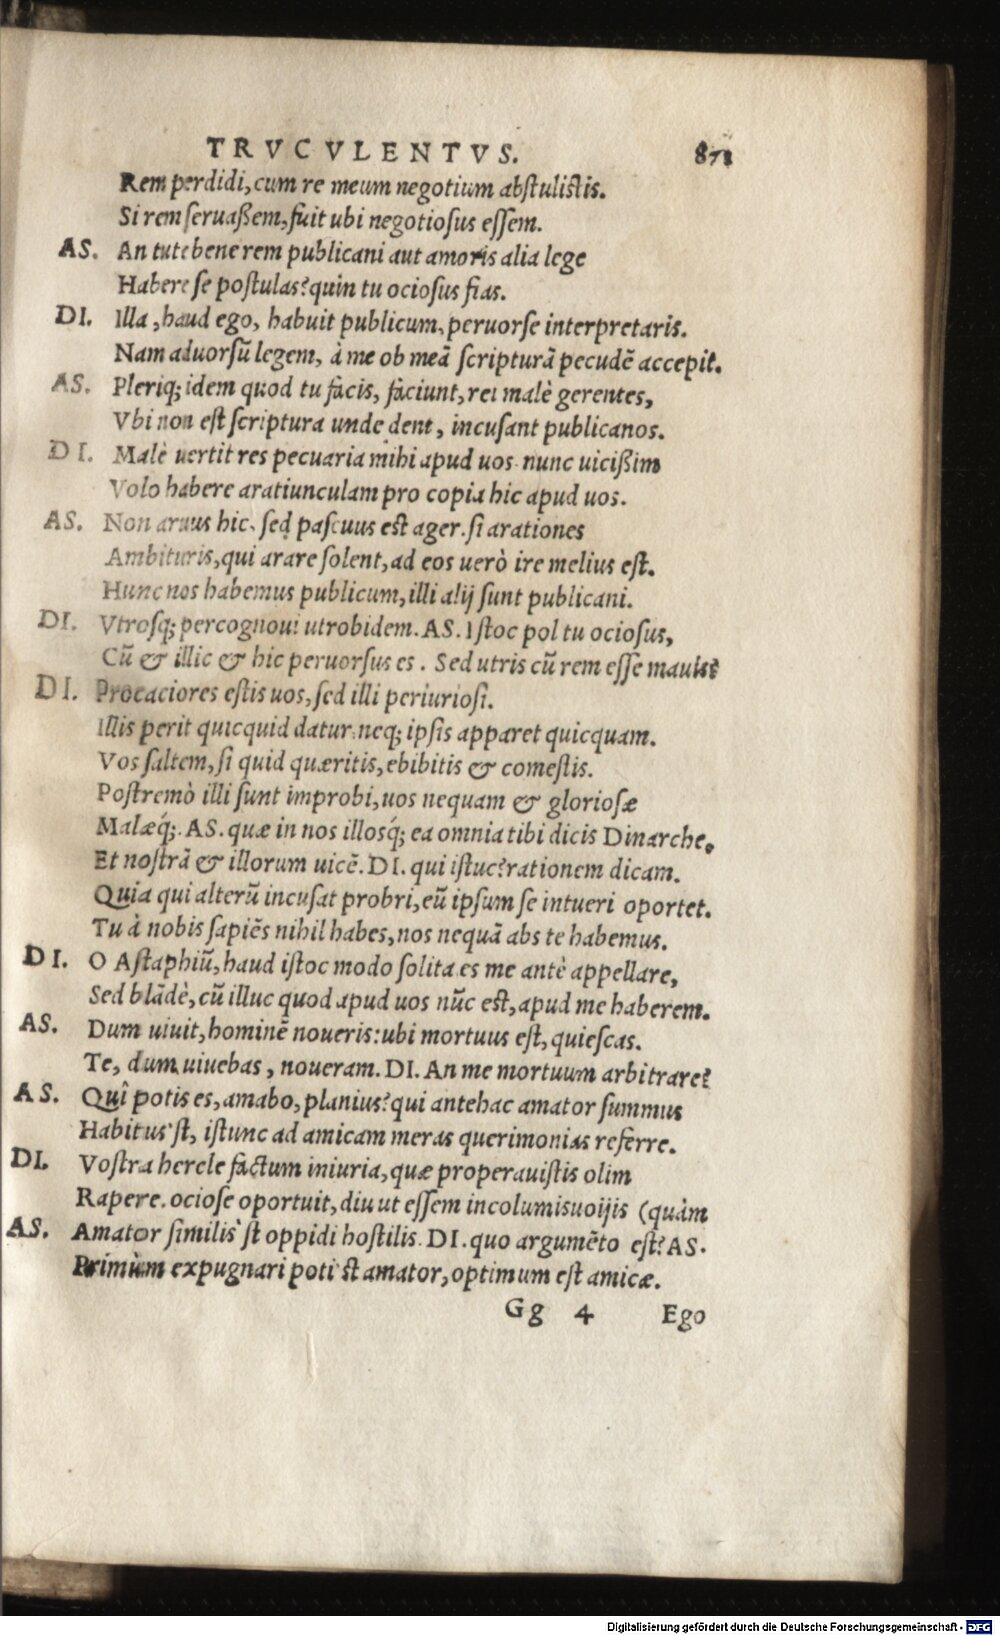 TRVCVLENTVS. 871
Rem perdidi, cum re meum negotium abstulistis.
Si rem seruaßem, fuit ubi negotiosus essem.
AS. An tute bene rem publicani aut amoris alia lege
Habere se postulas? quin tu ociosus fias.
DI. Illa, haud ego, habuit publicum, peruorse interpretaris.
Nam aduorsũ legem, à me ob meã scripturã pecudẽ accepit.
AS. Pleriq; idem quod tu facis, faciunt, rei malè gerentes,
Vbi non est scriptura unde dent, incusant publicanos.
DI. Malè uertit res pecuaria mihi apud uos. nunc uicißim
Volo habere aratiunculam pro copia hic apud uos.
AS. Non aruus hic, sed pascuus est ager. si arationes
Ambituris, qui arare solent, ad eos uerò ire melius est.
Hunc nos habemus publicum, illi alij sunt publicani.
DI. Vtrosq; percognoui utrobidem. AS. Istoc pol tu ociosus,
Cũ & illic & hic peruorsus es. Sed utris cũ rem esse mauis?
DI. Procaciores estis uos, sed illi periuriosi.
Illis perit quicquid datur, neq; ipsis apparet quicquam.
Vos saltem, si quid quæritis, ebibitis & comestis.
Postremò illi sunt improbi, uos nequam & gloriosæ
Malæq́;. AS. quæ in nos illosq́; ea omnia tibi dicis Dinarche,
Et nostrã & illorum uicẽ. DI. qui istuc? rationem dicam.
Quia qui alterũ incusat probri, eũ ipsum se intueri oportet.
Tu à nobis sapiẽs nihil habes, nos nequã abs te habemus.
DI. O Astaphiũ, haud istoc modo solita es me antè appellare,
Sed blãdè, cũ illuc quod apud uos nũc est, apud me haberem.
AS. Dum uiuit, hominẽ noueris: ubi mortuus est, quiescas.
Te, dum uiuebas, noueram. DI. An me mortuum arbitrare?
AS. Quî potis es, amabo, planius? qui antehac amator summus
Habitus'st, istunc ad amicam meras querimonias referre.
DI. Vostra hercle factum iniuria, quæ properauistis olim
Rapere. ociose oportuit, diu ut essem incolumis uoijis (quàm
AS. Amator similis'st oppidi hostilis. DI. quo argumẽto est? AS.
Primùm expugnari poti'st amator, optimum est amicæ.
Gg 4 Ego
Digitalisierung gefördert durch die Deutsche Forschungsgemeinschaft - DFG